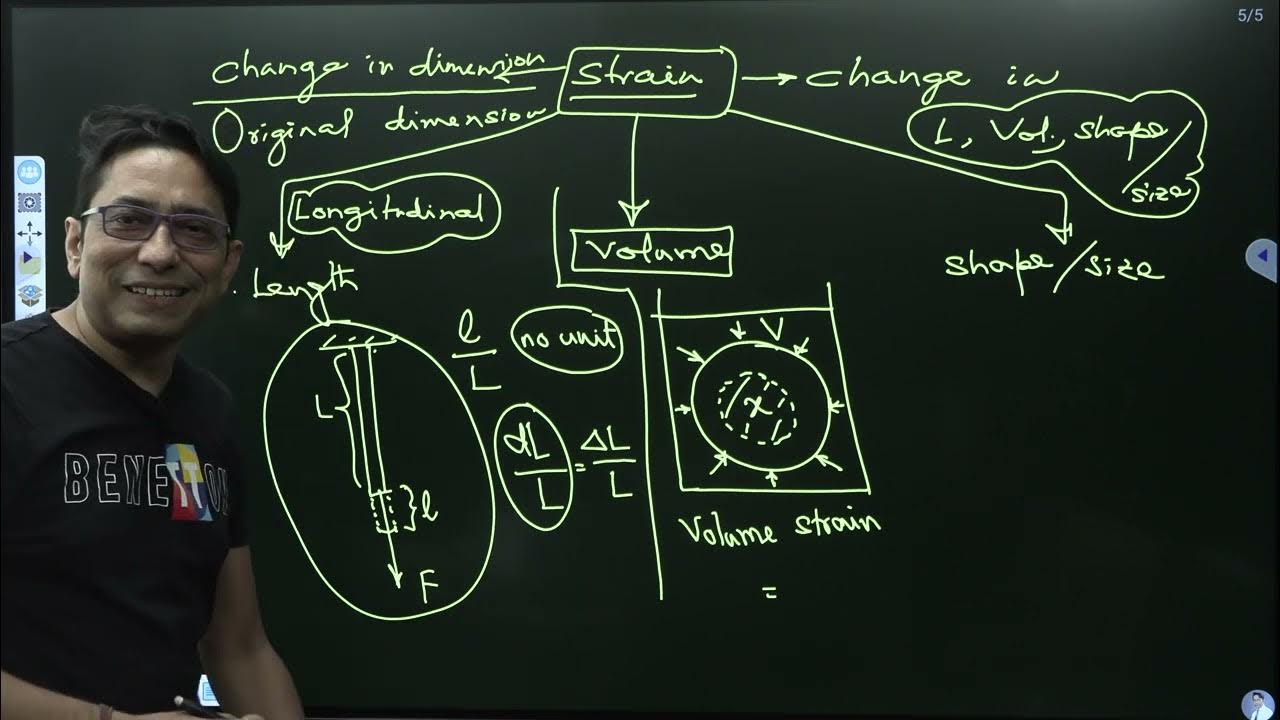 5/5
Change in dimension
Original dimension
Strain
Change in
L, Vol., shape/
size
Longitudinal
Length
Volume
shape/size
l
L
no unit
dL
L
=
ΔL
L
L
l
F
V
x
Volume strain
=
BENETTON